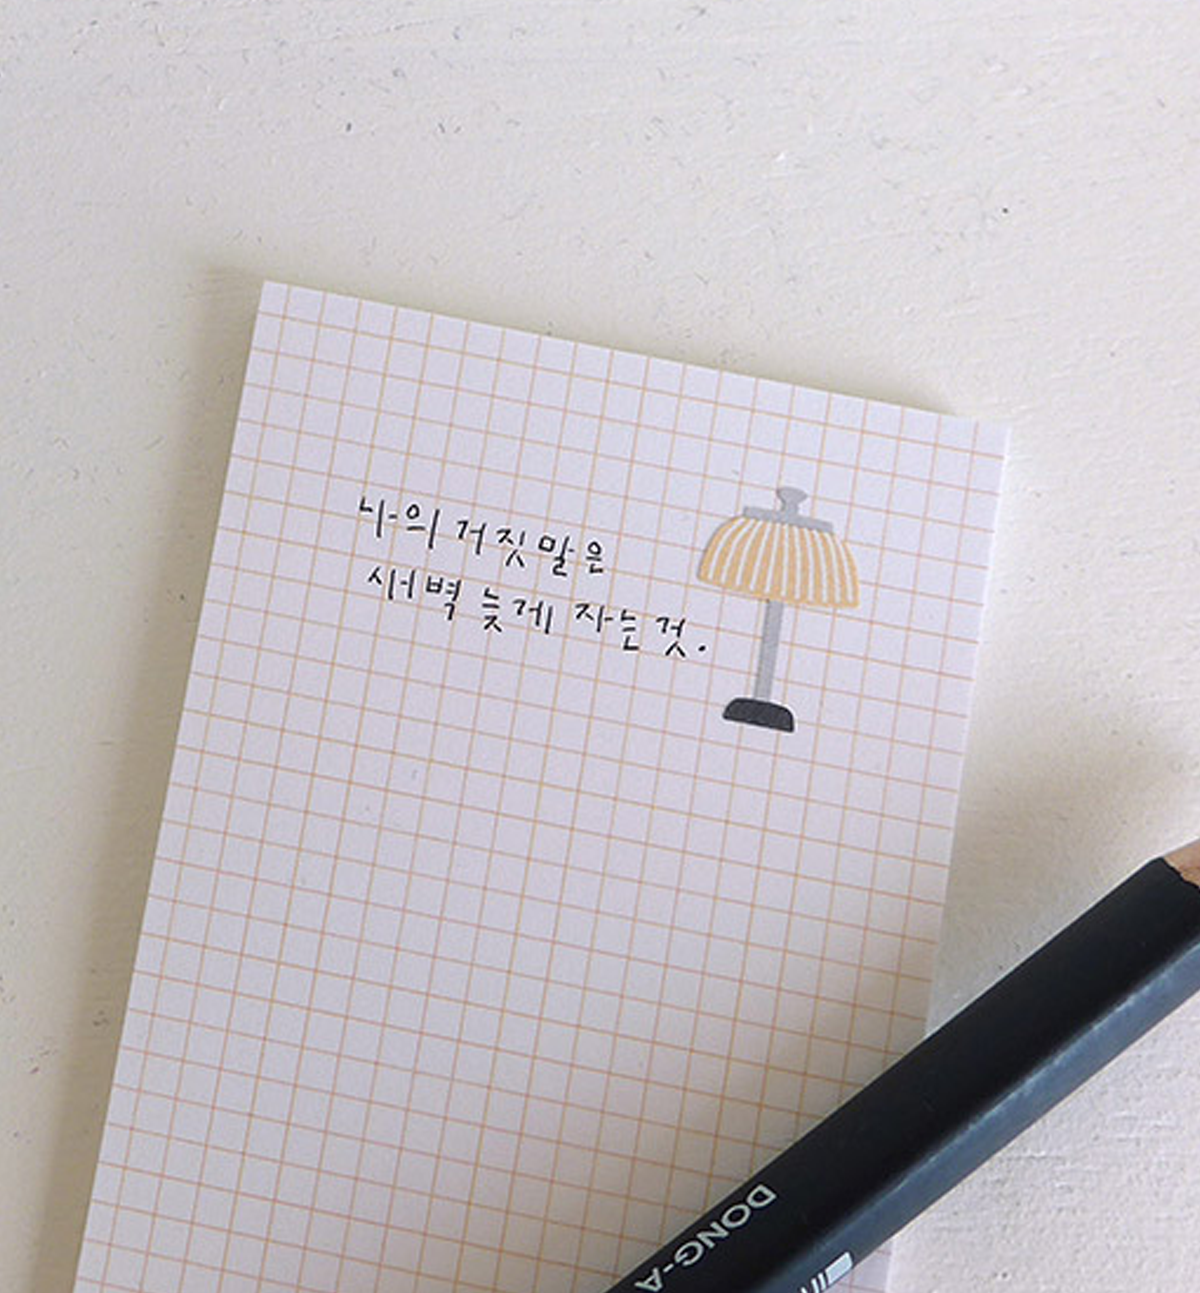 나의 거짓말은
새벽 늦게 자는 것.
DONG-A